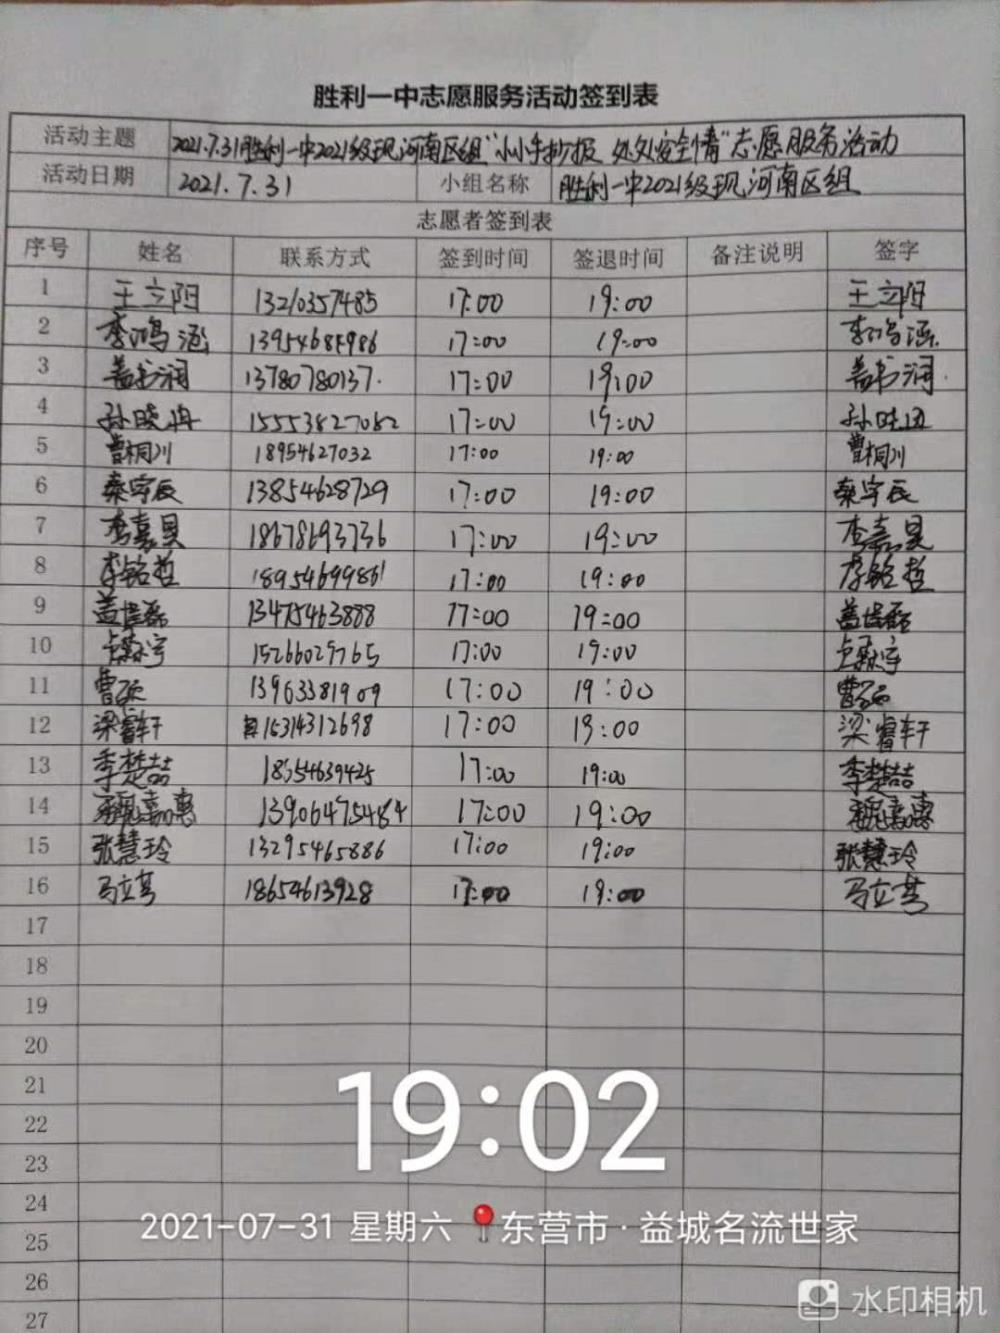 胜利一中志愿服务活动签到表
活动主题 2021.7.31胜利一中2021级现河南区组"小小手抄报 处处安全情"志愿服务活动
活动日期 2021.7.31 小组名称 胜利一中2021级现河南区组
志愿者签到表
序号 姓名 联系方式 签到时间 签退时间 备注说明 签字
1 王立阳 13210357485 17:00 19:00 王立阳
2 李鸿涵 17:00 19:00 李鸿涵
3 盖书润 13780780137. 17:00 19:00 盖书润
4 孙晓冉 15553827082 17:00 19:00
5 曹桐川 18954627032 17:00 19:00 曹桐川
6 秦宇辰 13854628729 17:00 19:00 秦宇辰
7 李嘉昊 18678693736 17:00 19:00 李嘉昊
8 李铭哲 18954699861 17:00 19:00 李铭哲
9 13475463888 17:00 19:00
10 15266029765 17:00 19:00
11 曹硕 13963381909 17:00 19:00 曹硕
12 梁睿轩 15314312698 17:00 19:00 梁睿轩
13 李楚喆 18654639425 17:00 19:00 李楚喆
14 魏嘉惠 13906475484 17:00 19:00 魏嘉惠
15 张慧玲 13295465886 17:00 19:00 张慧玲
16 18654613928 17:00 19:00
17
18
19
20
21
22
23
24
25
26
27
19:02
2021-07-31 星期六 东营市·益城名流世家
水印相机